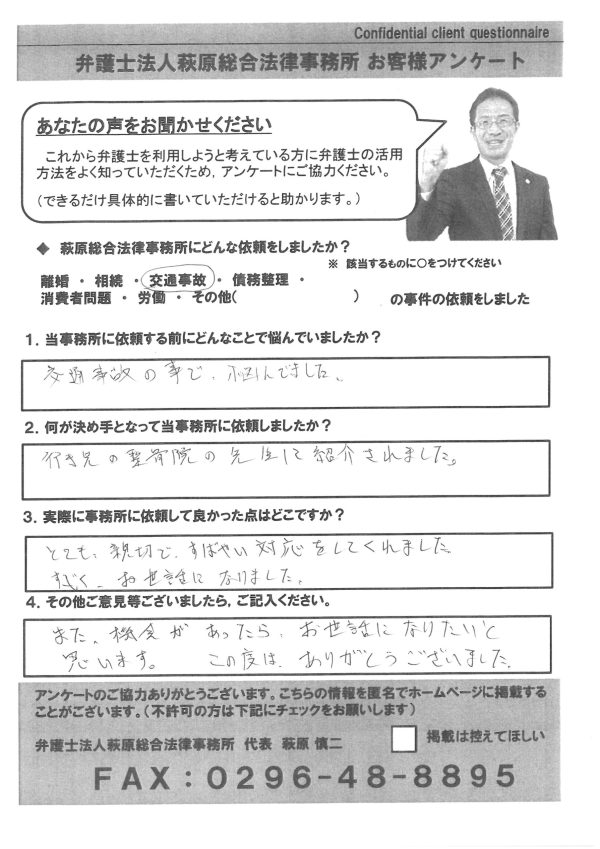 Confidential client questionnaire
弁護士法人萩原総合法律事務所 お客様アンケート
あなたの声をお聞かせください
これから弁護士を利用しようと考えている方に弁護士の活用
方法をよく知っていただくため,アンケートにご協力ください。
(できるだけ具体的に書いていただけると助かります。)
◆ 萩原総合法律事務所にどんな依頼をしましたか?
※ 該当するものに○をつけてください
離婚 ・ 相続 ・ 交通事故 ・ 債務整理 ・
消費者問題 ・ 労働 ・ その他( ) の事件の依頼をしました
1. 当事務所に依頼する前にどんなことで悩んでいましたか?
交通事故の事で、悩んでました。
2. 何が決め手となって当事務所に依頼しましたか?
行き先の整骨院の先生に紹介されました。
3. 実際に事務所に依頼して良かった点はどこですか?
とても、親切で、すばやい対応をしてくれました
お世話になりました。
4. その他ご意見等ございましたら,ご記入ください。
また、機会があったら、お世話になりたいと
思います。 この度は、ありがとうございました。
アンケートのご協力ありがとうございます。こちらの情報を匿名でホームページに掲載する
ことがございます。(不許可の方は下記にチェックをお願いします)
弁護士法人萩原総合法律事務所 代表 萩原 慎二
掲載は控えてほしい
FAX:0296-48-8895